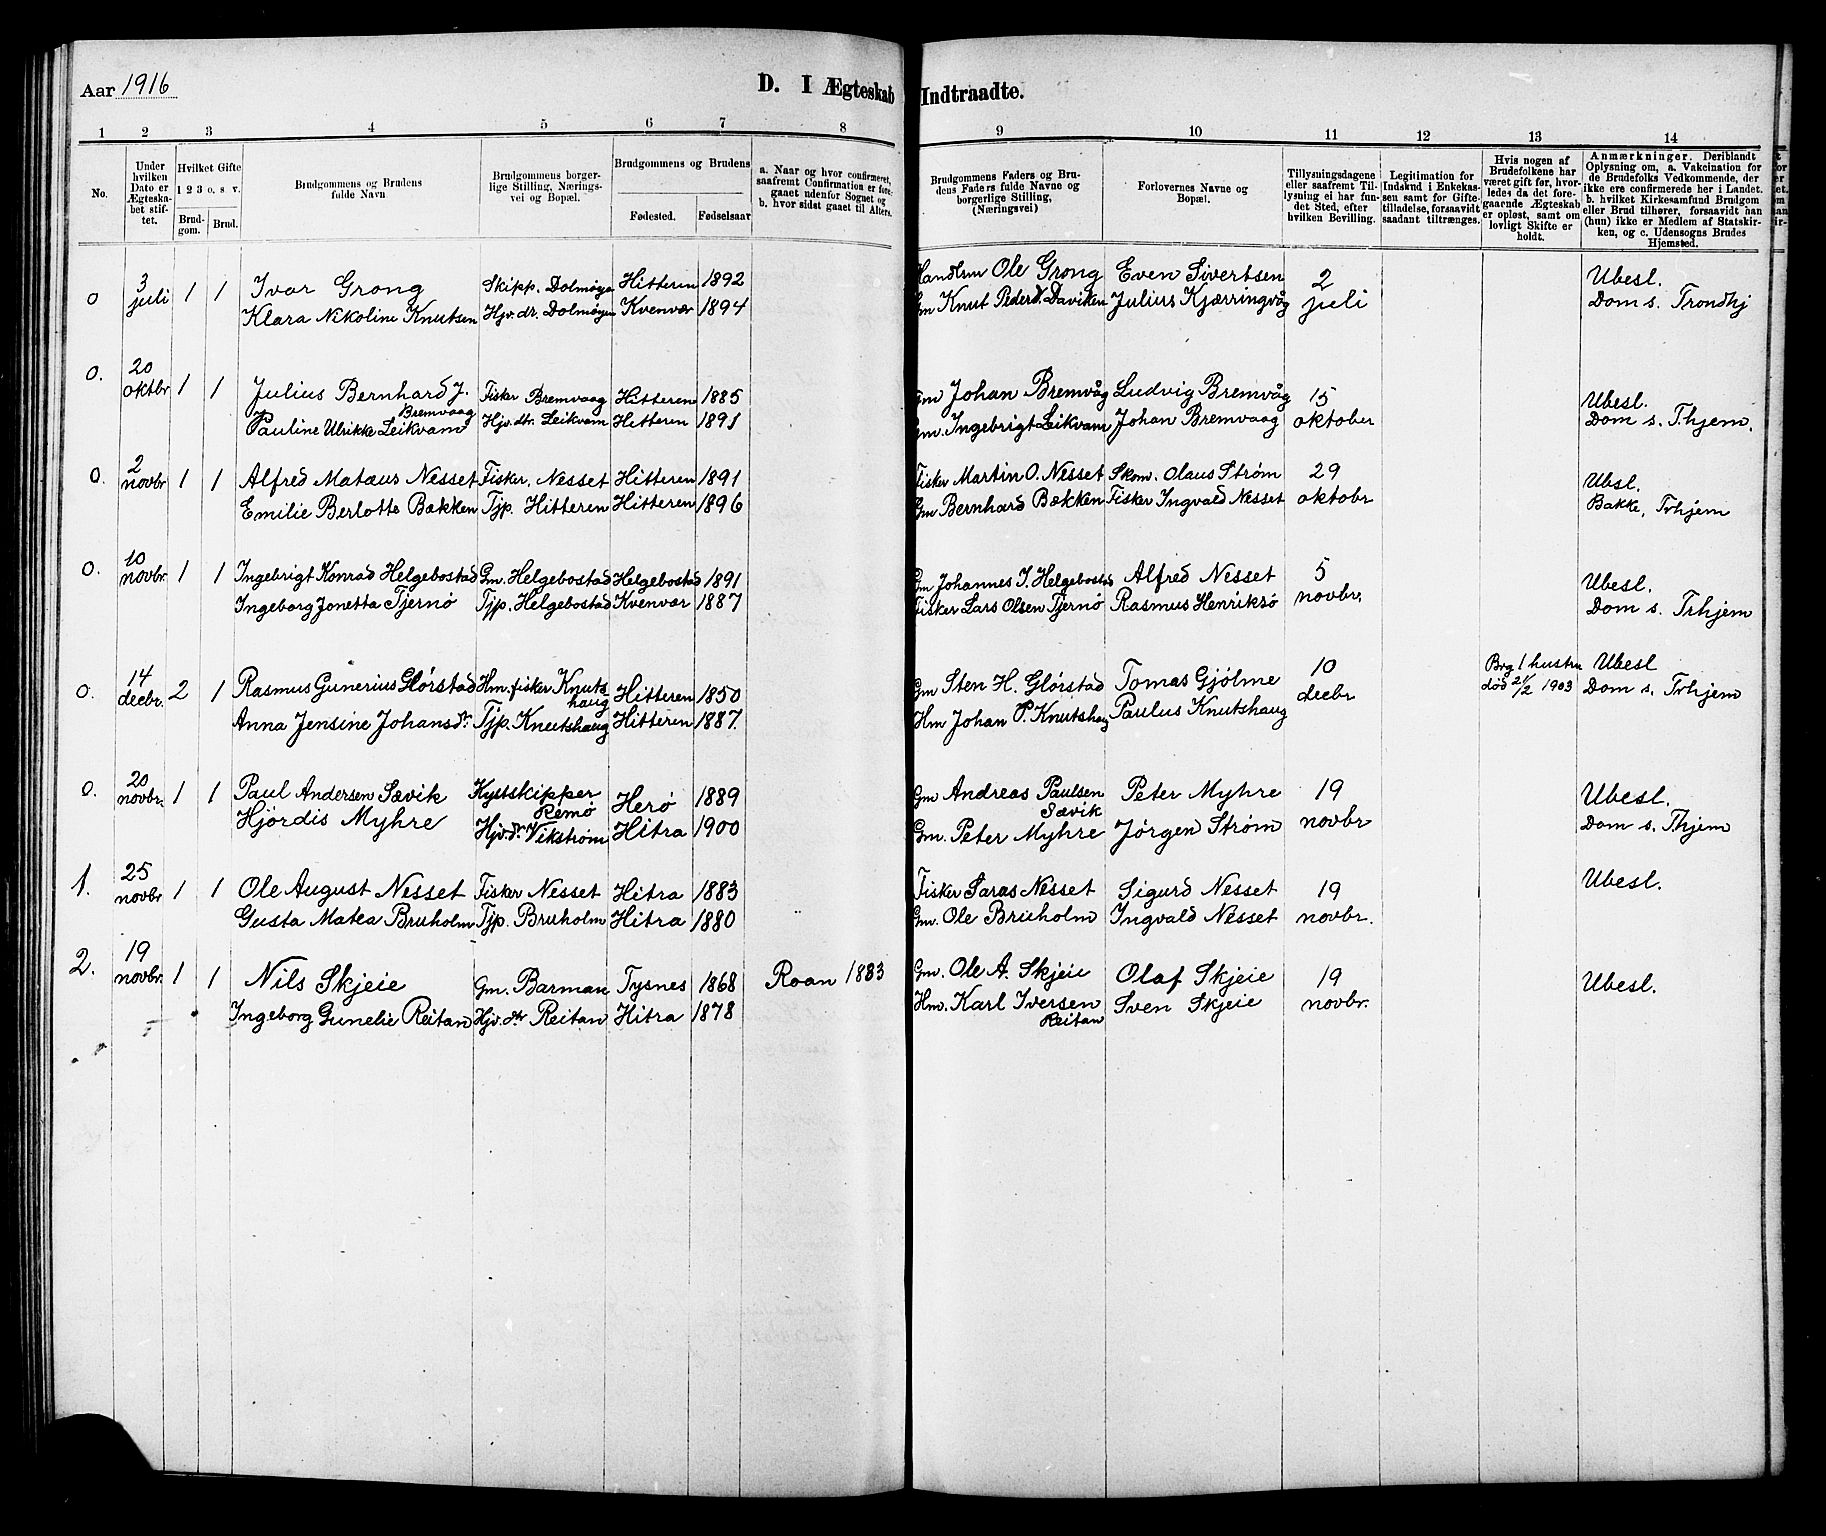 Aar 1916
D. I Ægteskab Indtraadte.
1 2 3 4 5 6 7 8 9 10 11 12 13 14
No.
Under hvilken Dato er Ægteskabet stiftet.
Hvilket Gifte 1 2 3 o. s v.
Brudgom. Brud.
Brudgommens og Brudens fulde Navn
Brudgommens borgerlige Stilling, Næringsvei og Bopæl.
Brudgommens og Brudens
Fødested. Fødselsaar
a. Naar og hvor confirmeret, saafremt Confirmation er foregaaet udenfor Sognet og b. hvor sidst gaaet til Alters.
Brudgommens Faders og Brudens Faders fulde Navne og borgerlige Stilling, (Næringsvei)
Forlovernes Navne og Bopæl.
Tillysningsdagene eller saafremt Tillysning ei har fundet Sted, efter hvilken Bevilling.
Legitimation for Indskud i Enkekassen samt for Giftetilladelse, forsaavidt saadant tiltrænges.
Hvis nogen af Brudefolkene har været gift før, hvorledes da det foregaaende Ægteskab er opløst, samt om lovligt Skifte er holdt.
Anmærkninger. Deriblandt Oplysning om, a. Vakcination for de Brudefolks Vedkommende, der ikke ere confirmerede her i Landet. b. hvilket Kirkesamfund Brudgom eller Brud tilhører, forsaavidt han (hun) ikke er Medlem af Statskirken, og c. Udensogns Brudes Hjemsted.
0 3 juli 1 1 Ivar Grong Skipp. Dolmøya Hitteren 1892 Handlsm Ole Grong Even Sivertsen 2 juli Ubesl.
Klara Nikoline Knutsen Hjv. dr. Dolmøyen Kvenvær 1894 Gm Knut Peders. Daviken Julius Kjærringvåg Dom s. Trondhj
0. 20 oktbr 1 1 Julius Bernhard J. Bremvaag Fisker Bremvaag Hitteren 1885 Gm Johan Bremvåg Ludvig Bremvåg 15 oktober Ubesl.
Pauline Ulrikke Leikvam Hjv. dtr. Leikvam Hitteren 1891 Gm. Ingebrigt Leikvam Johan Bremvaag Dom s. Thjem.
0. 2 novbr 1 1 Alfred Matæus Nesset Fisker, Nesset Hitteren 1891 Fisker Martin O. Nesset Skom. Olaus Strøm 29 oktobr Ubsl.
Emilie Berlotte Bækken Tjp. Hitteren Hitteren 1896 Gm Bernhard Bækken Fisker Ingvald Nesset Bakke, Trhjem
0. 10 novbr. 1 1 Ingebrigt Konrad Helgebostad Gm. Helgebostad Helgebostad 1891 Gm Johannes I. Helgebostad Alfred Nesset 5 novbr. Ubesl.
Ingeborg Jonetta Tjernø Tjp. Helgebostad Kvenvær 1887 Fisker Lars Olsen Tjernø Rasmus Henriksø Dom s. Trhjem
0. 14 decbr. 2 1 Rasmus Gunerius Glørstad Hm. fisker Knutshaug Hitteren 1850 Gm Sten H. Glørstad Tomas Gjølme 10 decbr Brg 1 hustru død 21/2 1903 Ubesl
Anna Jensine Johansdr. Tjp. Knutshaug Hitteren 1887. Hm Johan P. Knutshaug Paulus Knutshaug Dom s. Trhjem
0. 20 novbr. 1 1 Paul Andersen Sævik Kystskipper Remø Herø 1889 Gm Andreas Paulsen Sævik Peter Myhre 19 novbr Ubesl.
Hjørdis Myhre Hjv. dr. Vikstrøm Hitra 1900 Gm. Peter Myhre Jørgen Strøm Dom s. Thjem
1. 25 novbr 1 1 Ole August Nesset Fisker Nesset Hitra 1883 Fisker Saras Nesset Sigurd Nesset 19 novbr. Ubesl.
Gusta Matea Bruholm Tjp. Bruholm Hitra 1880 Gm. Ole Bruholm Ingvald Nesset
2. 19 novbr. 1 1 Nils Skjeie Gm. Barman Tysnes 1868 Roan 1883 Gm. Ole A. Skjeie Olaf Skjeie 19 novbr. Ubesl.
Ingeborg Gunelie Reitan Hjv. dtr Reitan Hitra 1878 Hm. Karl Iversen Reitan Sven Skjeie